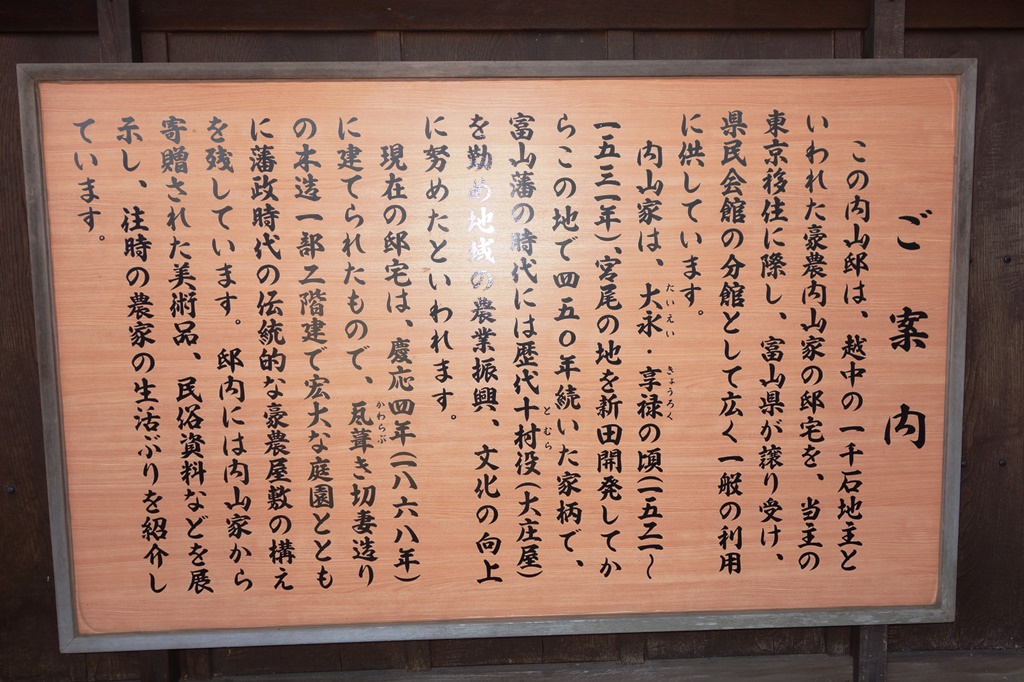 ご案内
この内山邸は、越中の一千石地主と
いわれた豪農内山家の邸宅を、当主の
東京移住に際し、富山県が譲り受け、
県民会館の分館として広く一般の利用
に供しています。
内山家は、大永・享禄の頃(一五二一〜
たいえい
きょうろく
一五三一年)、宮尾の地を新田開発してか
らこの地で四五〇年続いた家柄で、
富山藩の時代には歴代十村役(大庄屋)
とむら
を勤め地域の農業振興、文化の向上
に努めたといわれます。
現在の邸宅は、慶応四年(一八六八年)
に建てられたもので、瓦葺き切妻造り
かわらぶ
の木造一部二階建で宏大な庭園ととも
に藩政時代の伝統的な豪農屋敷の構え
を残しています。邸内には内山家から
寄贈された美術品、民俗資料などを展
示し、往時の農家の生活ぶりを紹介し
ています。